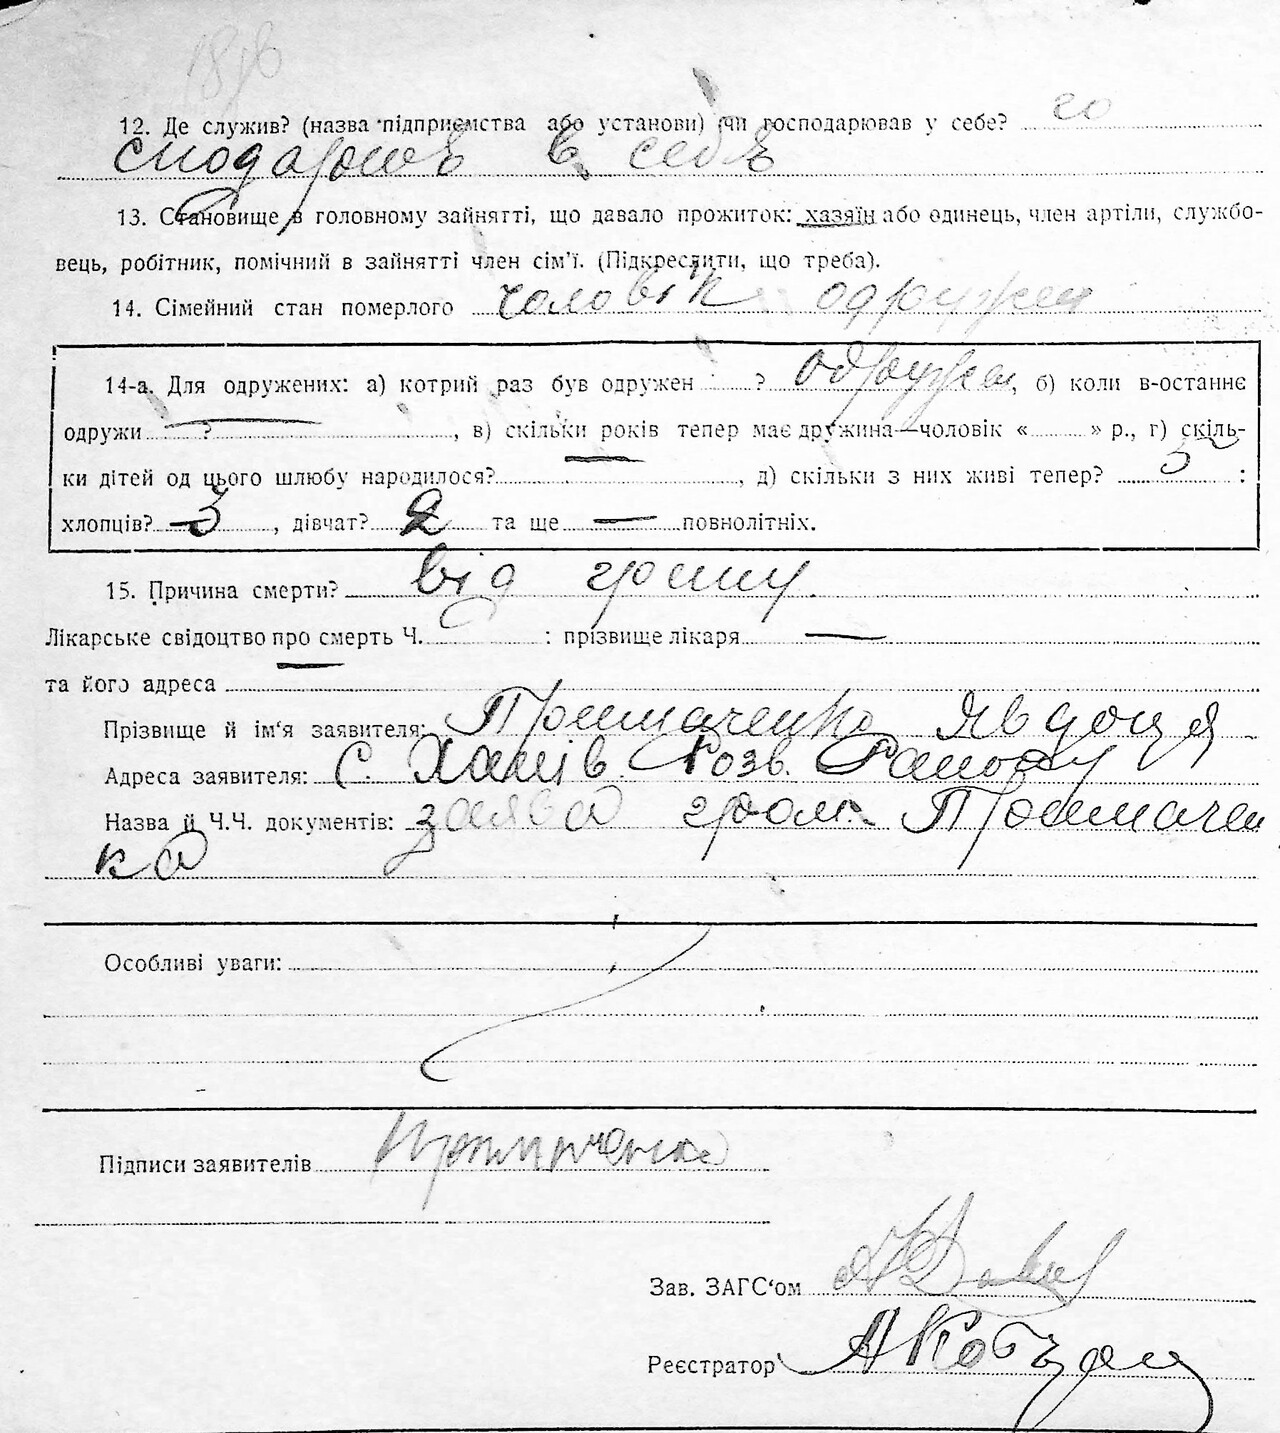 12. Де служив? (назва підприємства або установи) чи господарював у себе? го
сподарюв в себе
13. Становище в головному зайнятті, що давало прожиток: хазяїн або одинець, член артіли, службо-
вець, робітник, помічний в зайнятті член сім'ї. (Підкреслити, що треба).
14. Сімейний стан померлого чоловік одружен
14-а. Для одружених: а) котрий раз був одружен ? одружен, б) коли в-останнє
одружи ? —, в) скільки років тепер має дружина—чоловік « » р., г) скіль-
ки дітей од цього шлюбу народилося? —, д) скільки з них живі тепер? 5 :
хлопців? 3, дівчат? 2 та ще — повнолітніх.
15. Причина смерти? від грипу.
Лікарське свідоцтво про смерть Ч. : прізвище лікаря —
та його адреса —
Прізвище й ім'я заявителя: Приймаченко Явдоця
Адреса заявителя: с. Халив Розв. Району
Назва й Ч.Ч. документів: заява гром. Приймачен
ка
Особливі уваги:
Підписи заявителів
Зав. ЗАГС'ом
Реєстратор